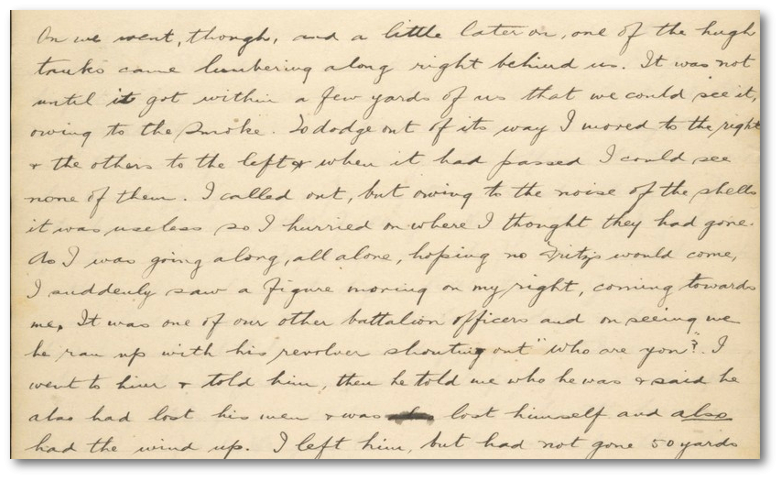 On we went, though, and a little later on, one of the hugh
tanks came lumbering along right behind us. It was not
until it got within a few yards of us that we could see it,
owing to the smoke. To dodge out of its way I moved to the right
+ the others to the left & when it had passed I could see
none of them. I called out, but owing to the noise of the shells
it was useless so I hurried on where I thought they had gone.
As I was going along, all alone, hoping no Fritzs would come,
I suddenly saw a figure moving on my right, coming towards
me. It was one of our other battalion officers and on seeing me
he ran up with his revolver shouting out "who are you?" I
went to him + told him, then he told me who he was & said he
also had lost his men + was lost himself and also
had the wind up. I left him, but had not gone 50 yards